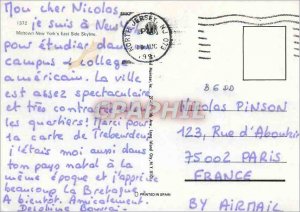 Mon cher Nicolas,
je suis à New
pour étudier dans
campus + college
américain. La ville
est assez spectaculaire
et très contra
les quartiers! Merci pour
la carte de Trebeurden
j'étais moi aussi dans
ton pays natal à la
même époque et j'apprécie
beaucoup la Bretagne
A bientôt. Amicalement.
Delphine
1572
Midtown New York's East Side Skyline.
NORTH JERSEY, NJ 070
PM
AUG
PRINTED IN SPAIN
Nicolas PINSON
123, Rue d'Aboukir
75002 PARIS
FRANCE
BY AIRMAIL
PRECARPHIL